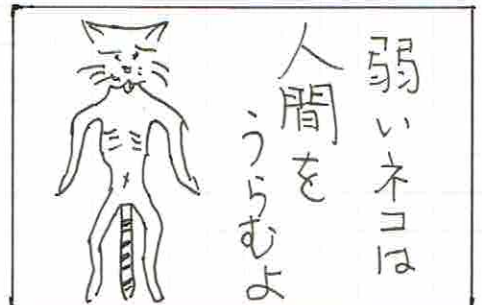 弱いネコは
人間を
うらむよ